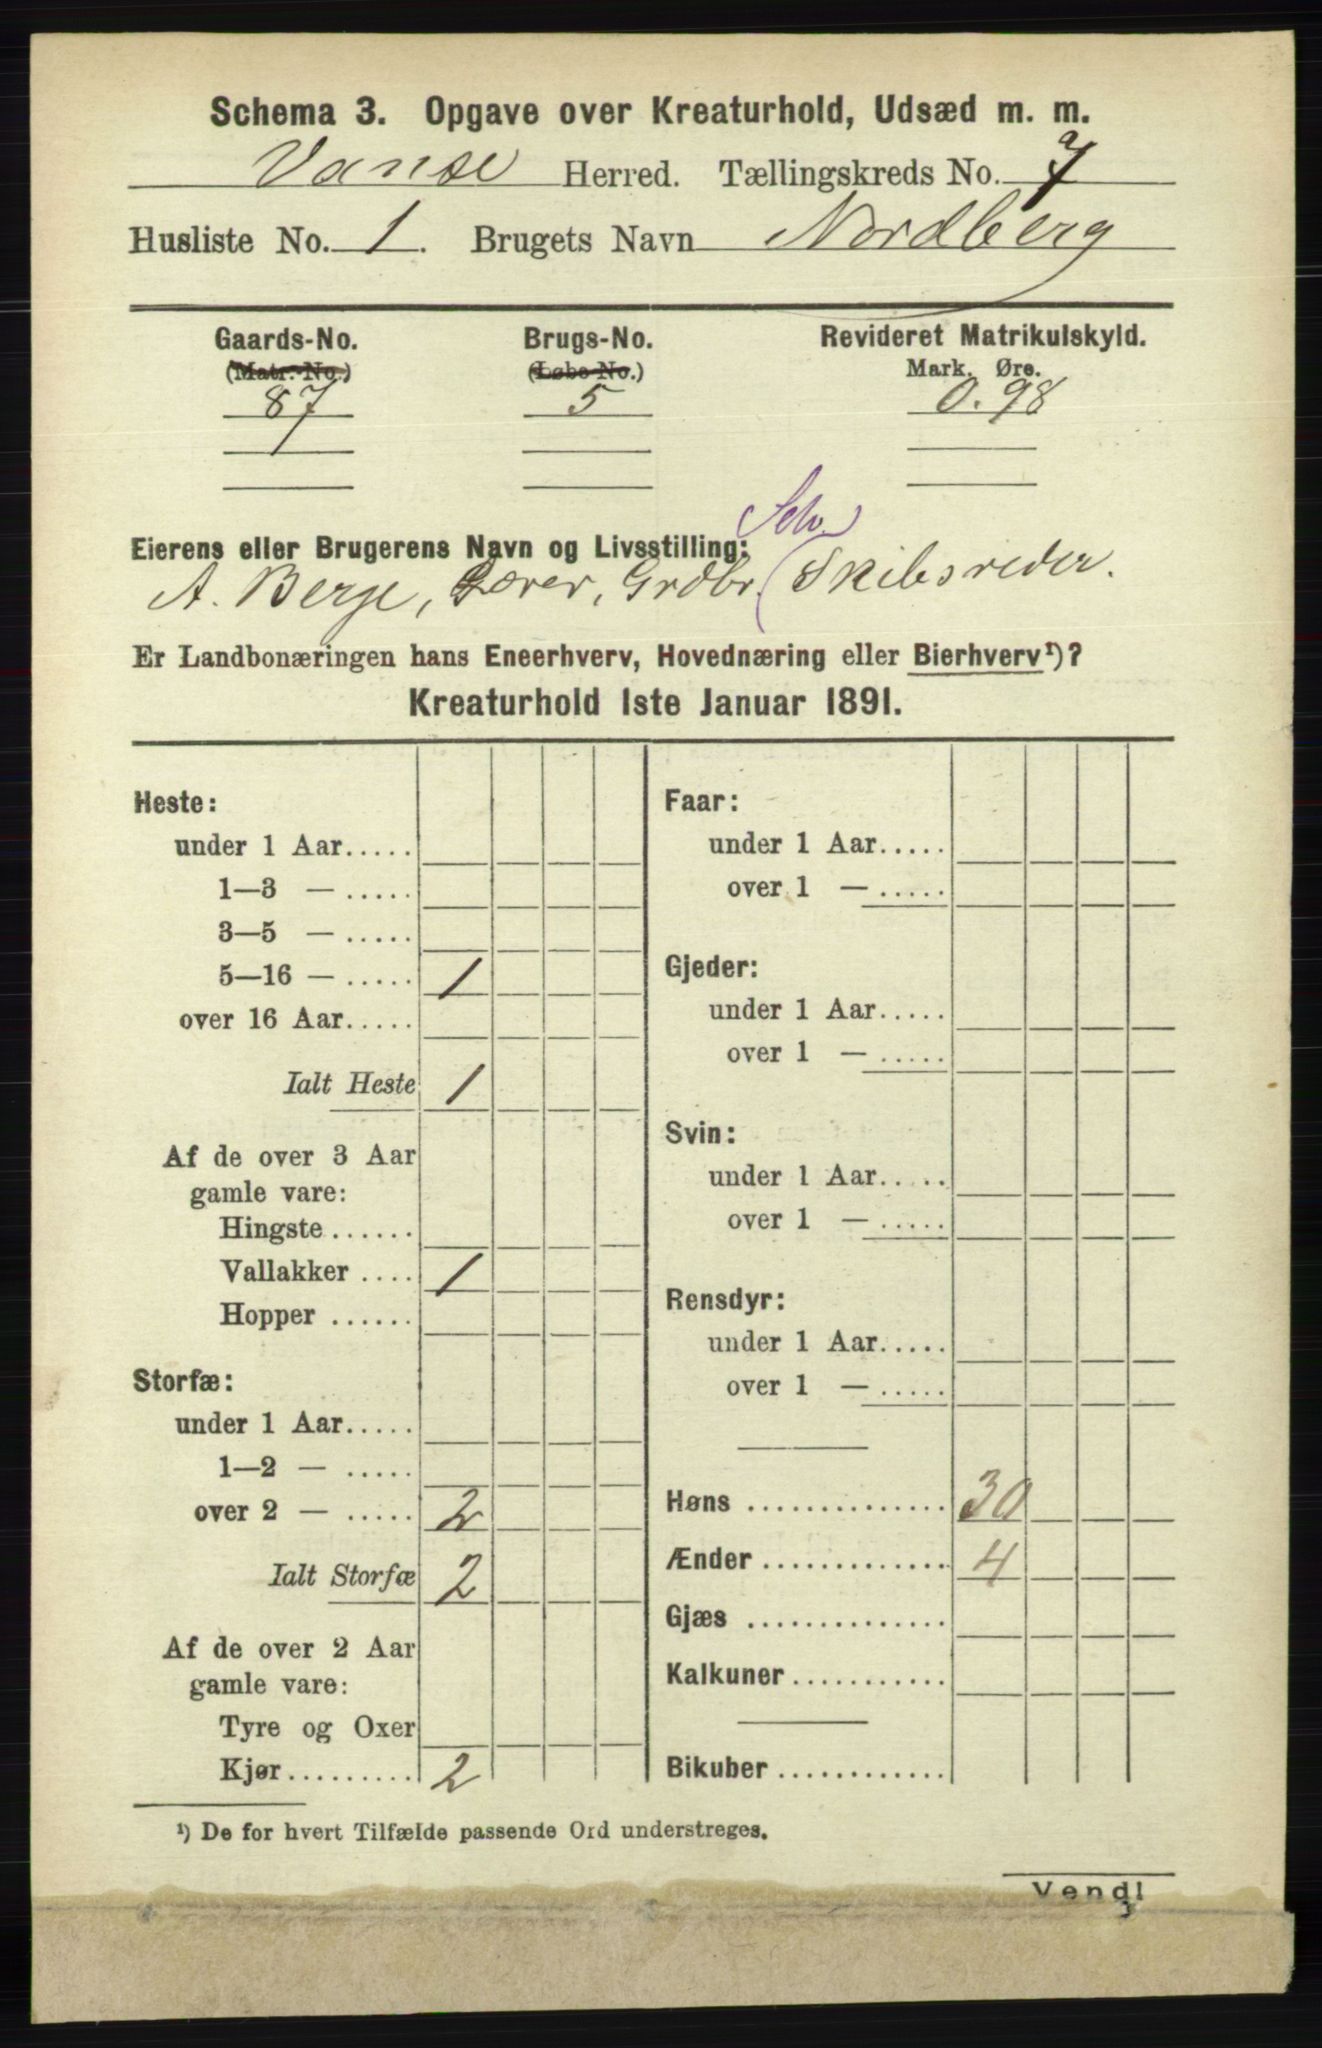 Schema 3. Opgave over Kreaturhold, Udsæd m. m.
Vanse Herred. Tællingskreds No. 7
Husliste No. 1. Brugets Navn Nordberg
Gaards-No. Brugs-No. Revideret Matrikulskyld.
(Matr.-No.) (Løbe-No.) Mark. Øre.
87 5 0.98
Selv.
Eierens eller Brugerens Navn og Livsstilling:
A. Berge, Lærer, Grdbr. (Skibsreder.
Er Landbonæringen hans Eneerhverv, Hovednæring eller Bierhverv¹)?
Kreaturhold 1ste Januar 1891.
Heste:
under 1 Aar.....
1—3 — .....
3—5 — .....
5—16 — ..... 1
over 16 Aar.....
Ialt Heste 1
Af de over 3 Aar
gamle vare:
Hingste ......
Vallakker .... 1
Hopper ......
Storfæ:
under 1 Aar.....
1—2 — .....
over 2 — ..... 2
Ialt Storfæ 2
Af de over 2 Aar
gamle vare:
Tyre og Oxer
Kjør.......... 2
Faar:
under 1 Aar.....
over 1 — .....
Gjeder:
under 1 Aar.....
over 1 — .....
Svin:
under 1 Aar.....
over 1 — .....
Rensdyr:
under 1 Aar.....
over 1 — .....
Høns .............. 30
Ænder ............. 4
Gjæs ..............
Kalkuner ............
Bikuber ............
¹) De for hvert Tilfælde passende Ord understreges.
Vend!